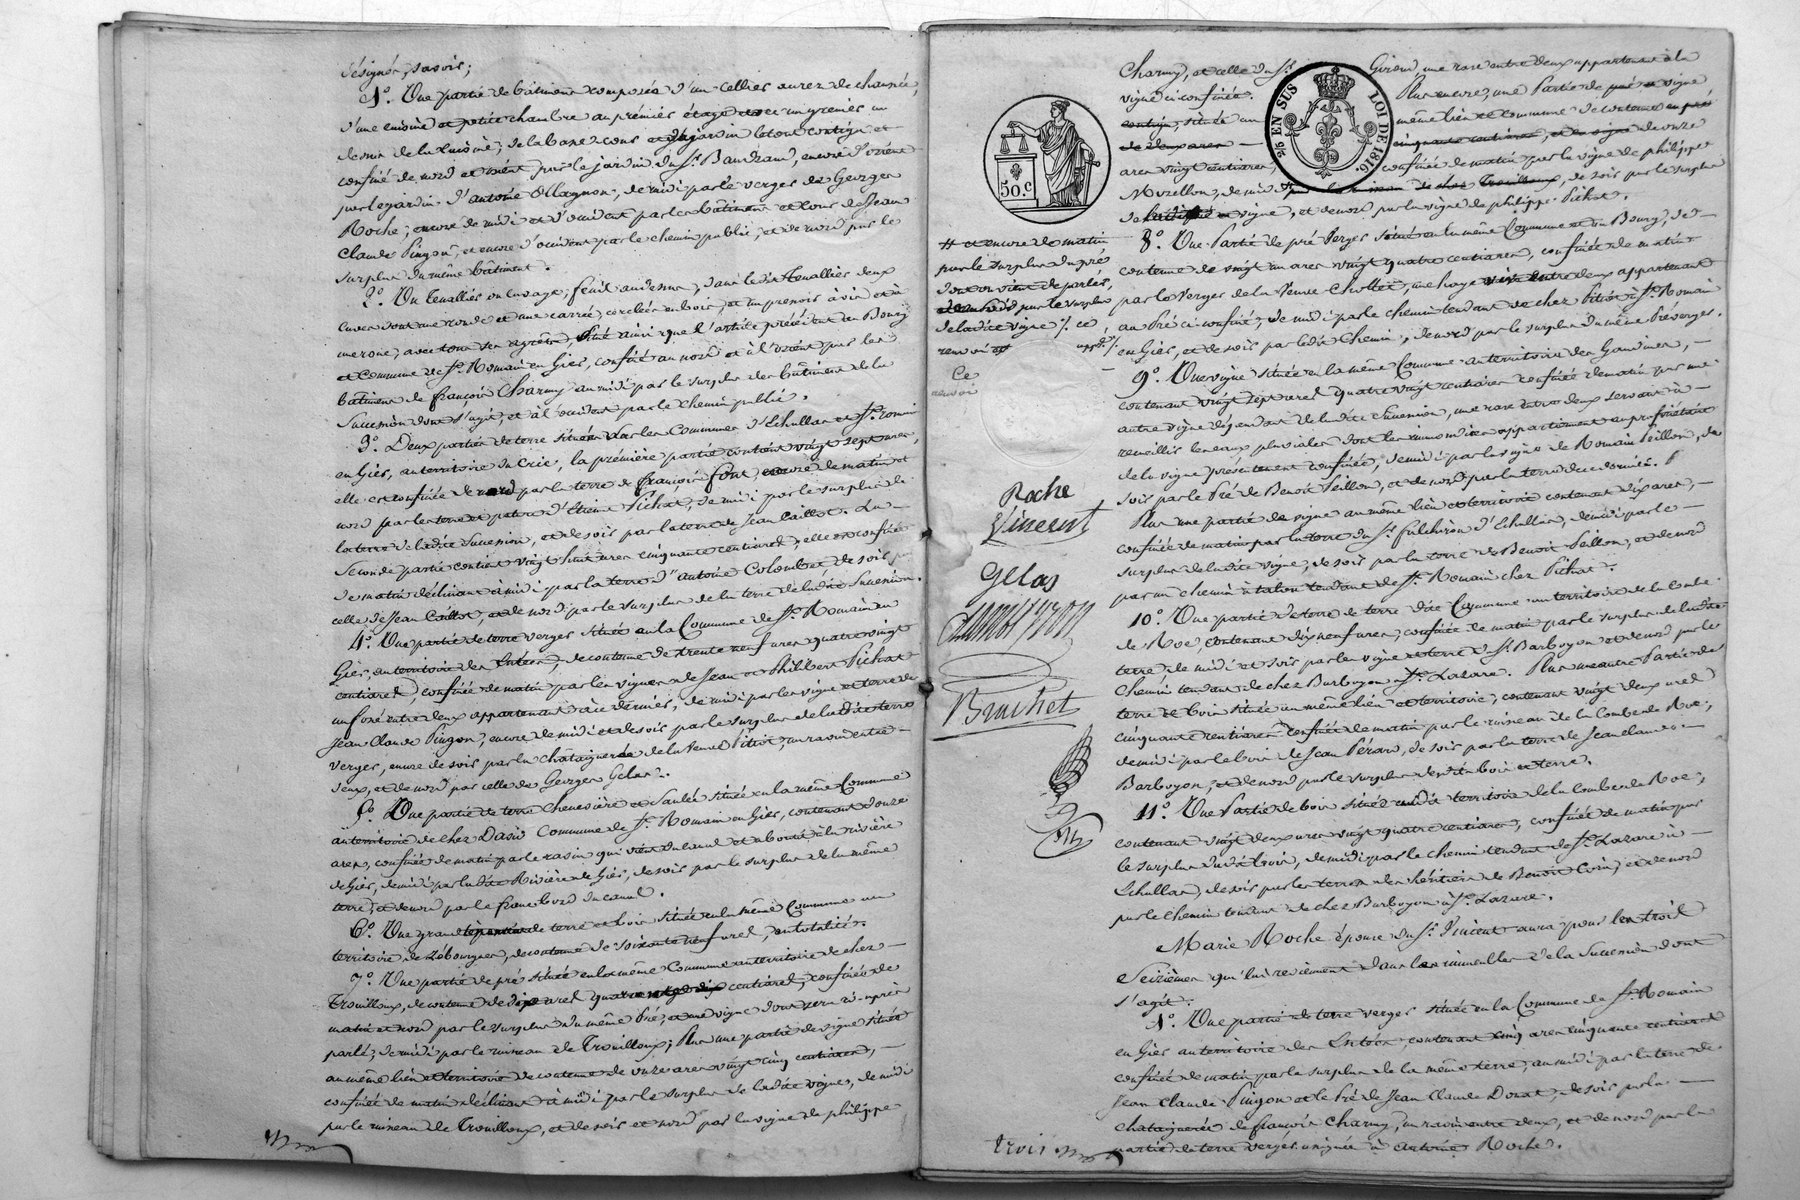 désignés, savoir;
1° Une partie de bâtiment composée d'un cellier au rez de chaussée,
d'une cuisine et petite chambre au premier étage avec un grenier au
dessus de la cuisine; de la basse cour et du jardin le tout contigu et
confiné de nord et orient par le jardin du Sr. Baudrand, encore d'orient
par le jardin d'antoine Magnon, de midi par le verger de Georges
Roche; encore de midi et d'occident par les bâtiments et cour de Jean
Claude Pingon, et encore d'occident par le chemin public, et de nord par le
surplus du même bâtiment.
2° Un Tenallier ou cuvage, dans le dit Tenallier deux
cuves dont une ronde et une carrée, cerclées en bois, et un pressoir à vis et à
une roue, avec tous ses agrès, situé ainsi que l'article précédent au Bourg
et Commune de St. Romain en Giès, confiné au nord et à l'orient par les
bâtiments de françois Charmy, au midi par le surplus des bâtiments de la
Succession dont s'agit, et à l'occident par le chemin public.
3° Deux parties de terre situées sur les Communes d'Echallas et St. romain
en Giès, au territoire du Crie, la première partie contient vingt sept ares,
elle est confinée de par la terre de françois font, encore de matin et
nord par les terre et pature d'Etienne Pichat, de midi par le surplus de
la terre de ladite Succession, et de soir par la terre de Jean Caillot. La
Seconde partie contient vingt huit ares cinquante centiares, elle est confinée
de matin déclinant à midi par la terre d'antoine Colombet, de soir par
celle de Jean Caillot, et de nord par le surplus de la terre de ladite Succession.
4° Une partie de terre verger située en la Commune de St. Romain en
Giès, au territoire des, de contenue de trente neuf ares quatre vingt
centiares, confinée de matin par les vignes de Jean et Philibert Pichat
un fossé entre deux appartenant à ce dernier, de midi par les vigne et terre de
Jean Claude Pingon, encore de midi et de soir par le surplus de ladite terre
verger, encore de soir par la châtaigneraie de la veuve Pitiot, un ravin entre
deux, et de nord par celle de Georges Gelas.
5° Une partie de terre Chenevière et Saulée située en la même Commune
au territoire de chez David Commune de St. Romain en Giès, contenant douze
ares, confinée de matin par le rasin qui vient du canal et aboutit à la rivière
de Giès, de midi par ladite Rivière de Giès, de soir par le surplus de la même
terre, et de nord par le franc bord du canal.
6° Une grande de terre et bois située en la même Commune au
territoire de, de contenue de soixante neuf ares, en totalité.
7° Une partie de pré située en la même Commune au territoire de chez
Trouilloux, de contenue de dix ares centiares, confinée de
matin et nord par le surplus du même Pré, et une vigne dont sera ci-après
parlé; de midi par le ruisseau de Trouilloux; Plus une partie de vigne située
au même lieu et territoire de contenue de onze ares vingt cinq centiares,
confinée de matin déclinant à midi par le surplus de ladite vigne, de midi
par le ruisseau de Trouilloux, et de soir et nord par la vigne de philippe
Charmy, et celle du Sr. Girard une rase entre deux appartenant à la
vigne ci confinée. Plus encore, une Partie de vigne
située au même lieu et Commune de contenue
de onze
ares vingt centiares, confinée de matin par la vigne de philippe
Mozellon, de midi, de soir par le surplus
de vigne, et de nord par la vigne de philippe Pichat.
8° Une Partie de pré Verger située en la même Commune et au Bourg, de
contenue de vingt un ares vingt quatre centiares, confinée de matin
par le verger de la Veuve Chollet, une haye entre deux appartenant
au Pré ci confiné; de midi par le chemin tendant de chez Pitiot à St. Romain
en Giès, et de soir par ledit Chemin, de nord par le surplus du même Pré verger.
9° Une vigne située en la même Commune au territoire des Gaudines,
contenant vingt sept ares quatre vingt centiares confinée de matin par une
autre vigne dépendant de ladite Succession, une rase entre deux servant à
recueillir les eaux pluviales dont les immondices appartiennent au propriétaire
de la vigne présentement confinée, de midi par la vigne de Romain Peillon, de
soir par le Pré de Benoit Peillon, et de nord par la terre de ce dernier.
Plus une partie de vigne au même lieu et territoire contenant dix ares,
confinée de matin par la terre du Sr. fulchiron d'Echallas, de midi par le
surplus de ladite vigne, de soir par la terre de Benoit Peillon, et de nord
par un chemin à talon tendant de St. Romain chez Pichat.
10° Une partie de terre de terre dite Commune au territoire de la Combe
de Roe, contenant dix neuf ares, confinée de matin par le surplus de ladite
terre, de midi et soir par les vigne et terre d' Barboyon et de nord par le
Chemin tendant de chez Barboyon à St. Lazare. Plus une autre Partie de
terre et bois située au même lieu et territoire, contenant vingt deux ares
cinquante centiares confinée de matin par le ruisseau de la Combe de Roe,
de midi par le bois de Jean Pérard, de soir par la terre de Jean claude
Barboyon, et de nord par le surplus desdits bois et terre.
11° Une Partie de bois située audit territoire de la Combe de Roe,
contenant vingt deux ares vingt quatre centiares, confinée de matin par
le surplus dudit bois, de midi par le chemin tendant de St. Lazare à
Echallas, de soir par les terres des héritiers de Benoit Coin, et de nord
par le Chemin tendant de chez Barboyon à St. Lazare.
Marie Roche épouse du Sr. Vincent aura pour les trois
Seizièmes qui lui reviennent dans les immeubles de la Succession dont
s'agit.
1° Une partie de terre verger située en la Commune de St. Romain
en Giès au territoire des, contenant cinq ares cinquante centiares
confinée de matin par le surplus de la même terre, au midi par la terre de
Jean Claude Pingon et le Pré de Jean Claude Donat, de soir par la
chataigneraie de françois Charmy, un ravin entre deux, et de nord par la
partie de terre verger assignée à Antoine Roche.
50 c
2/5 EN SUS
LOI DE 1816.
et encore de matin
par le surplus du pré
dont on vient de parler,
et au nord par le surplus
de ladite vigne /. ce
renvoi
Ce
renvoi
Roche
Vincent
Gelas
Brachet
trois